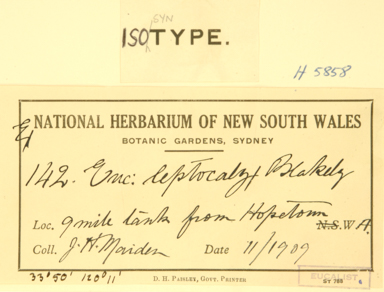 SYN
ISOTYPE.
H 5858
Ex NATIONAL HERBARIUM OF NEW SOUTH WALES
BOTANIC GARDENS, SYDNEY
142. Euc: leptocalyx Blakely
Loc. 9 mile tank from Hopetoun N.S.W A.
Coll. J. H. Maiden Date 11/1909
33°50' 120°11'
D. H. Paisley, Govt. Printer
EUCALIST